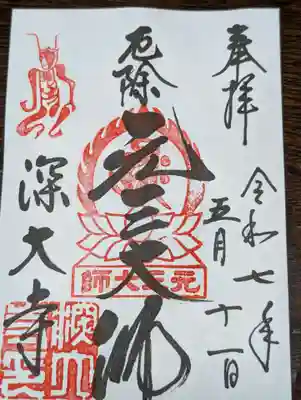 奉拝
令和七年
五月十一日
厄除
元三大師
元三大師
深大寺